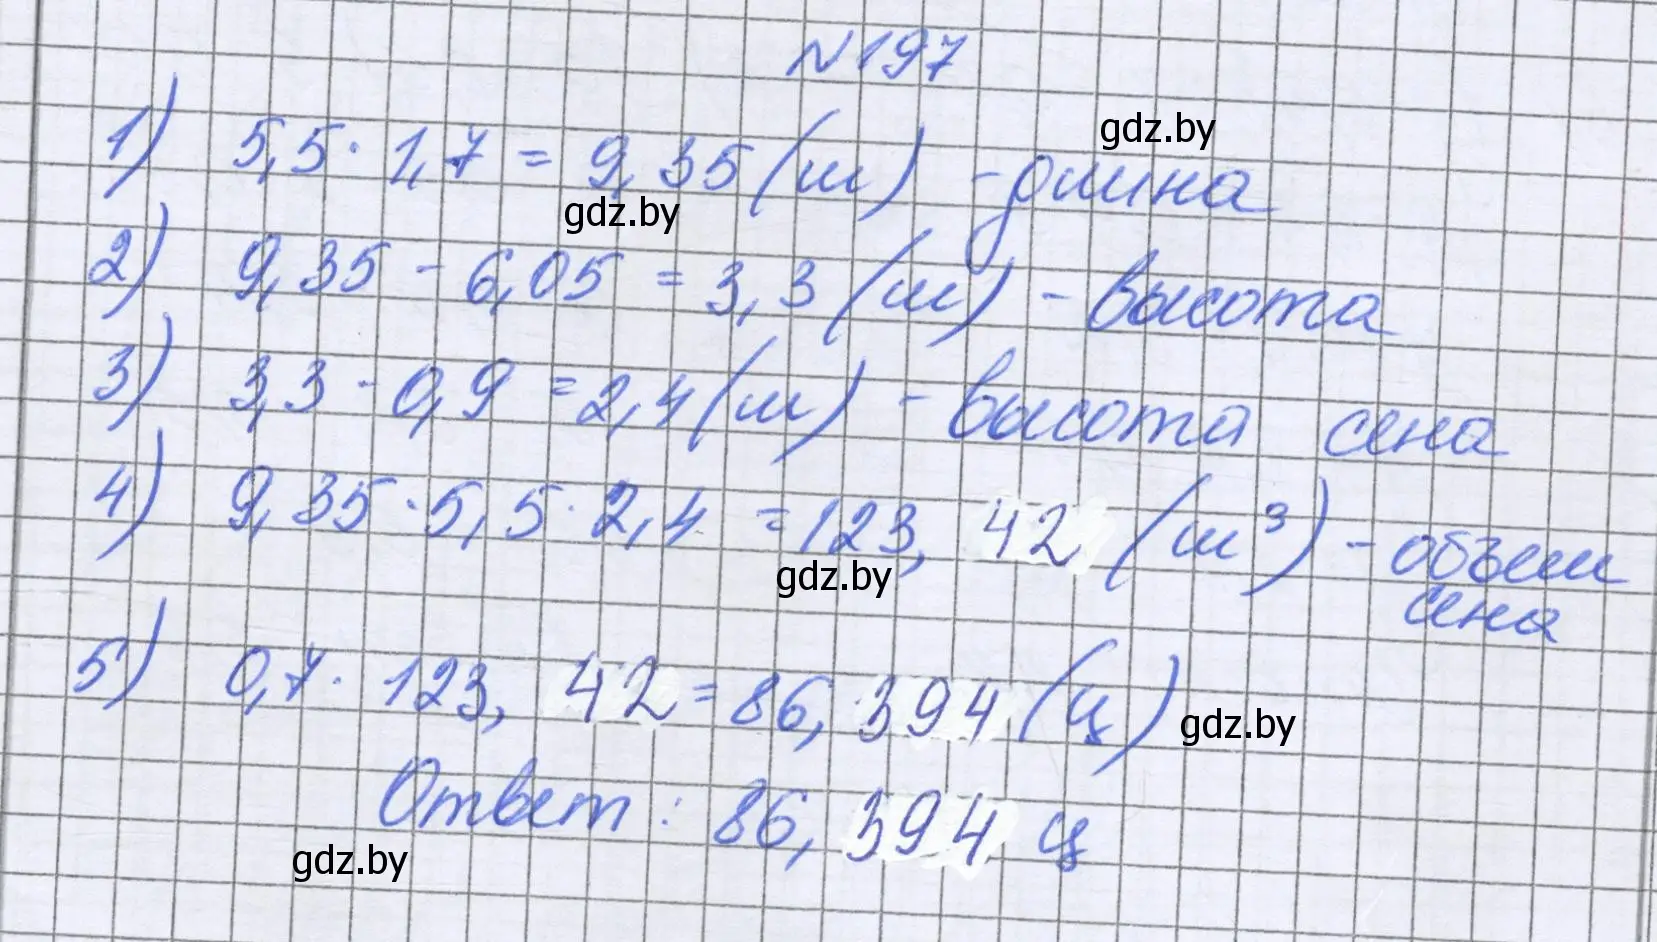 N 197
1) 5,5 · 1,7 = 9,35 (м) - длина
2) 9,35 - 6,05 = 3,3 (м) - высота
3) 3,3 - 0,9 = 2,4 (м) - высота сена
4) 9,35 · 5,5 · 2,4 = 123,42 (м³) - объем
сена
5) 0,7 · 123,42 = 86,394 (ц)
Ответ: 86,394 ц
gdz.by
gdz.by
gdz.by
gdz.by
gdz.by